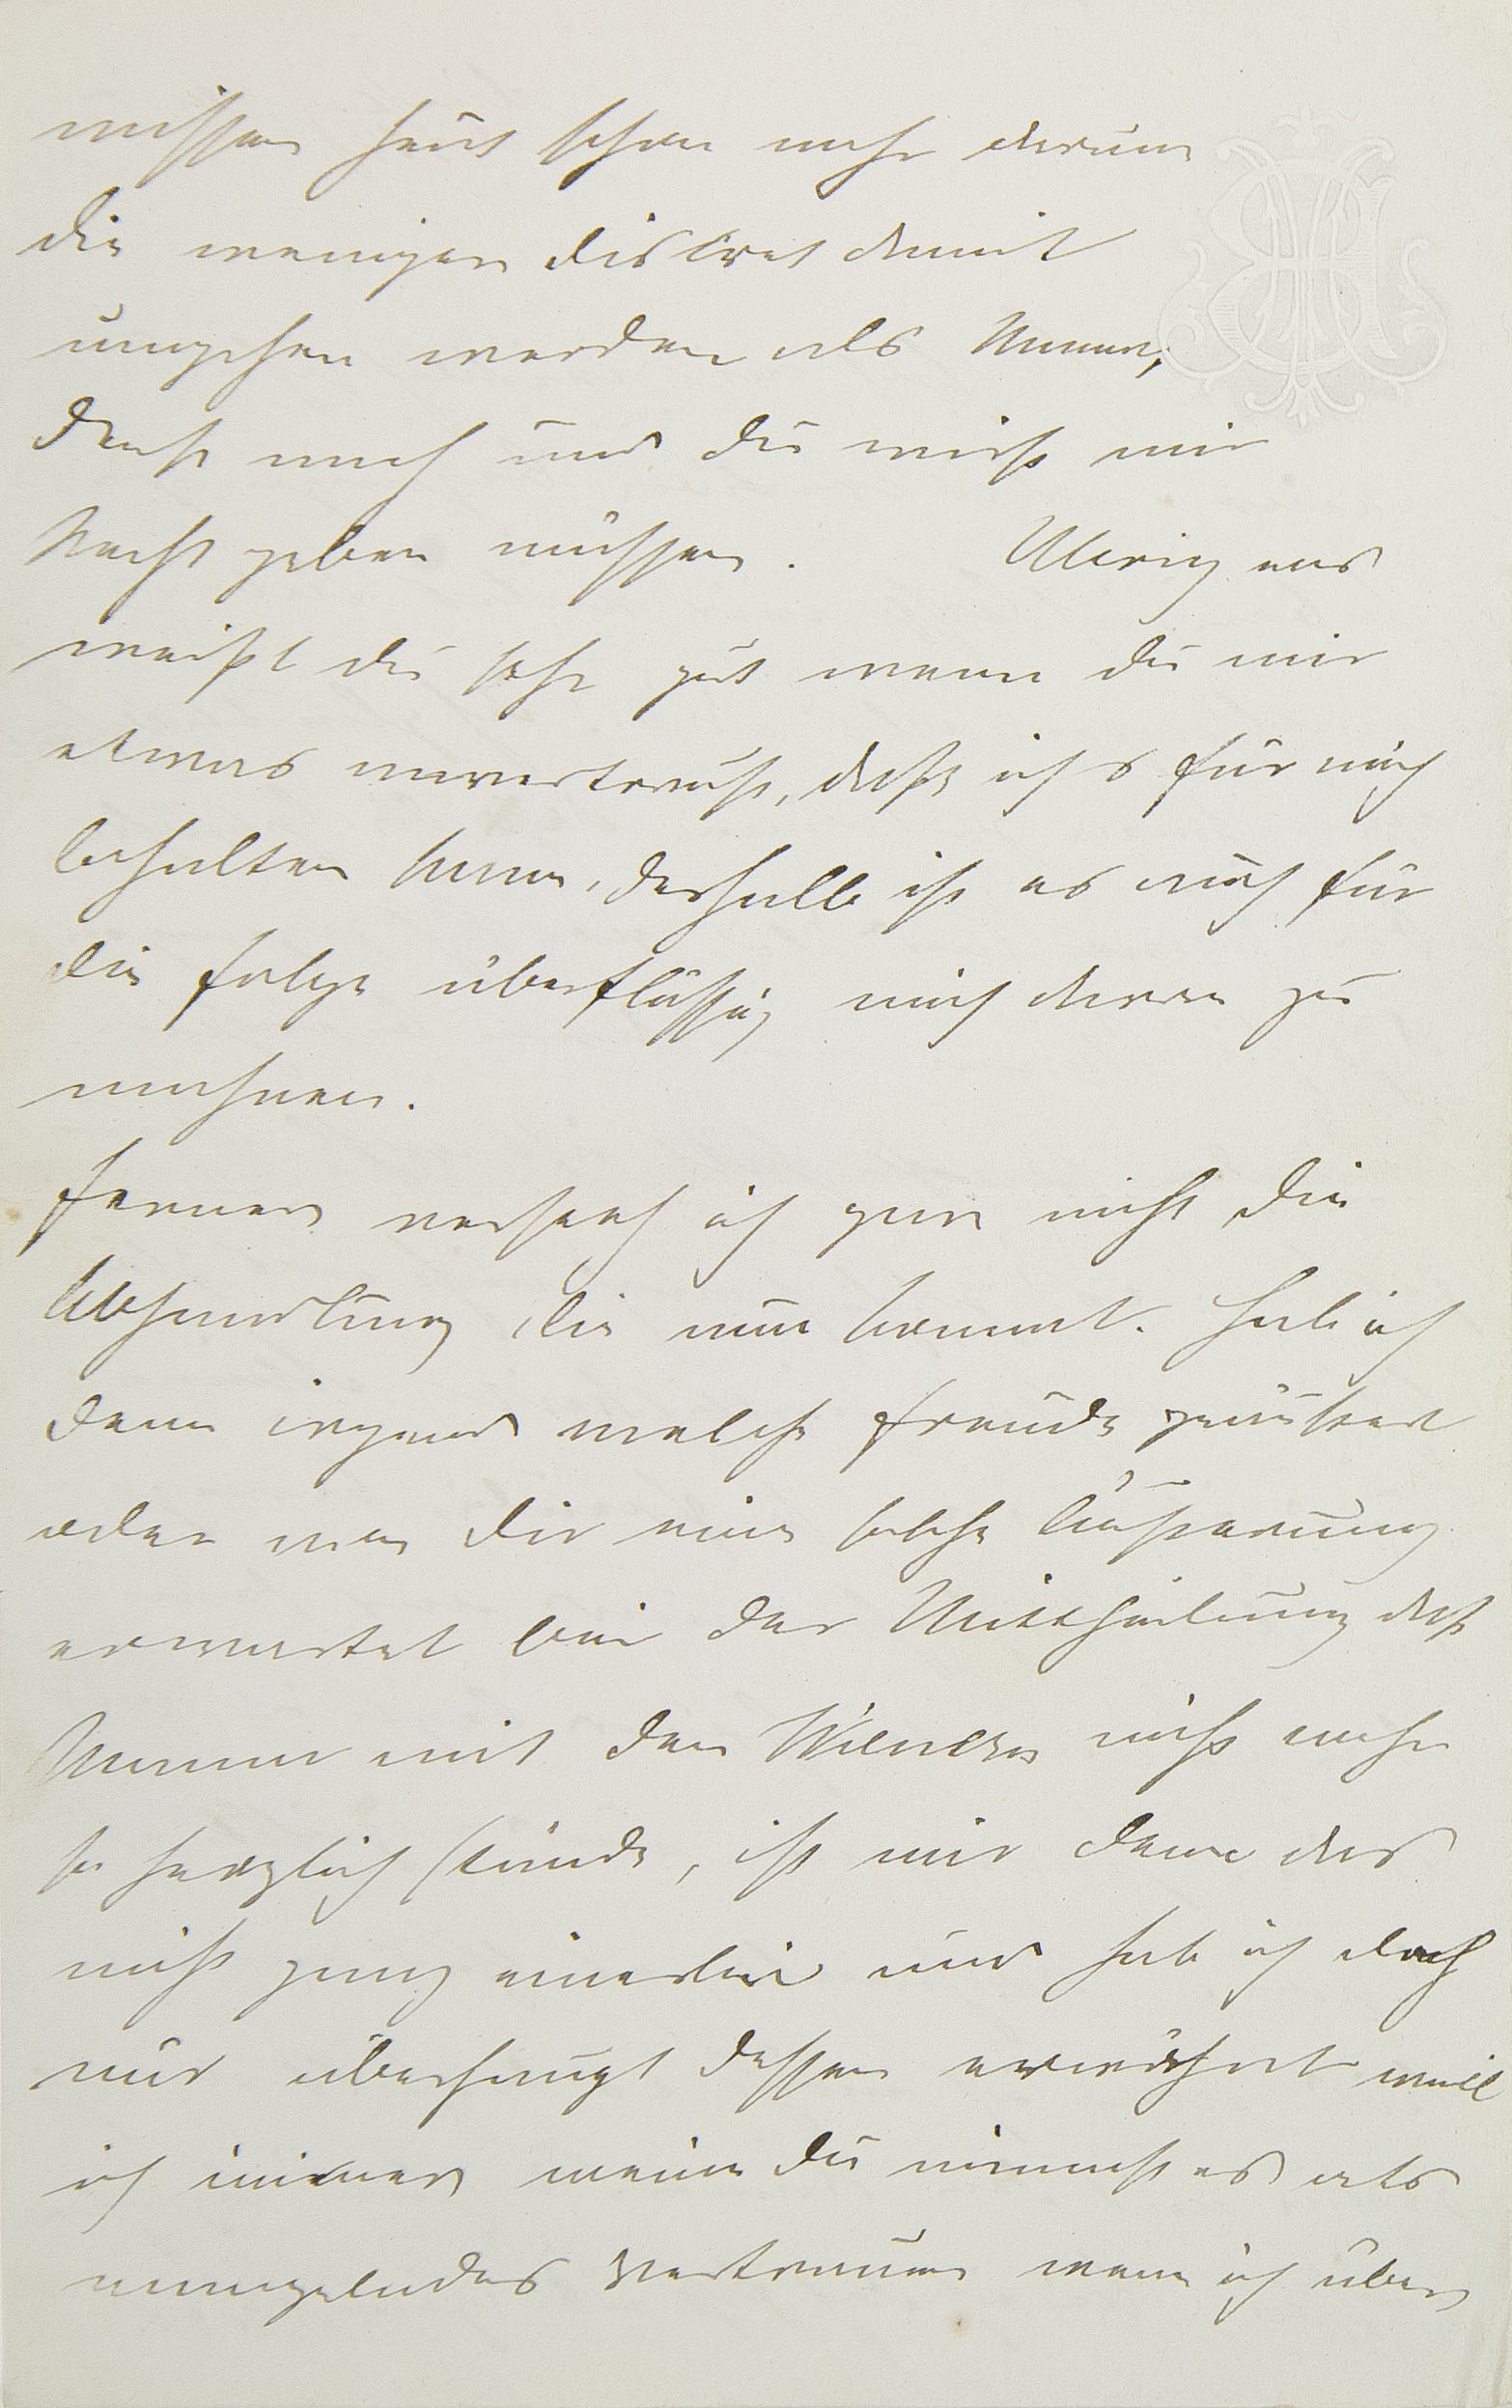 wissen heut schon mehr darum
die weniger diskret damit
umgehen werden als Mama,
denke nach und du wirst mir
Recht geben müssen. Übrigens
weißt du sehr gut wenn du mir
etwas anvertraust, daß ich's für mich
behalten kann, deshalb ist es auch für
die Folge überflüssig mich daran zu
mahnen.
Ferner versteh ich gar nicht die
Abhandlung die nun kommt. Hab ich
denn irgend welche Freude geäußert
oder was dir eine solche Äußerung
erwartet bei der Mittheilung daß
Mama mit den nicht mehr
so herzlich stünde, ist mir denn das
nicht ganz einerlei und hab ich doch
nur überhaupt dessen erwähnt weil
ich immer meine du nimmst es als
mangelndes Vertrauen wenn ich über